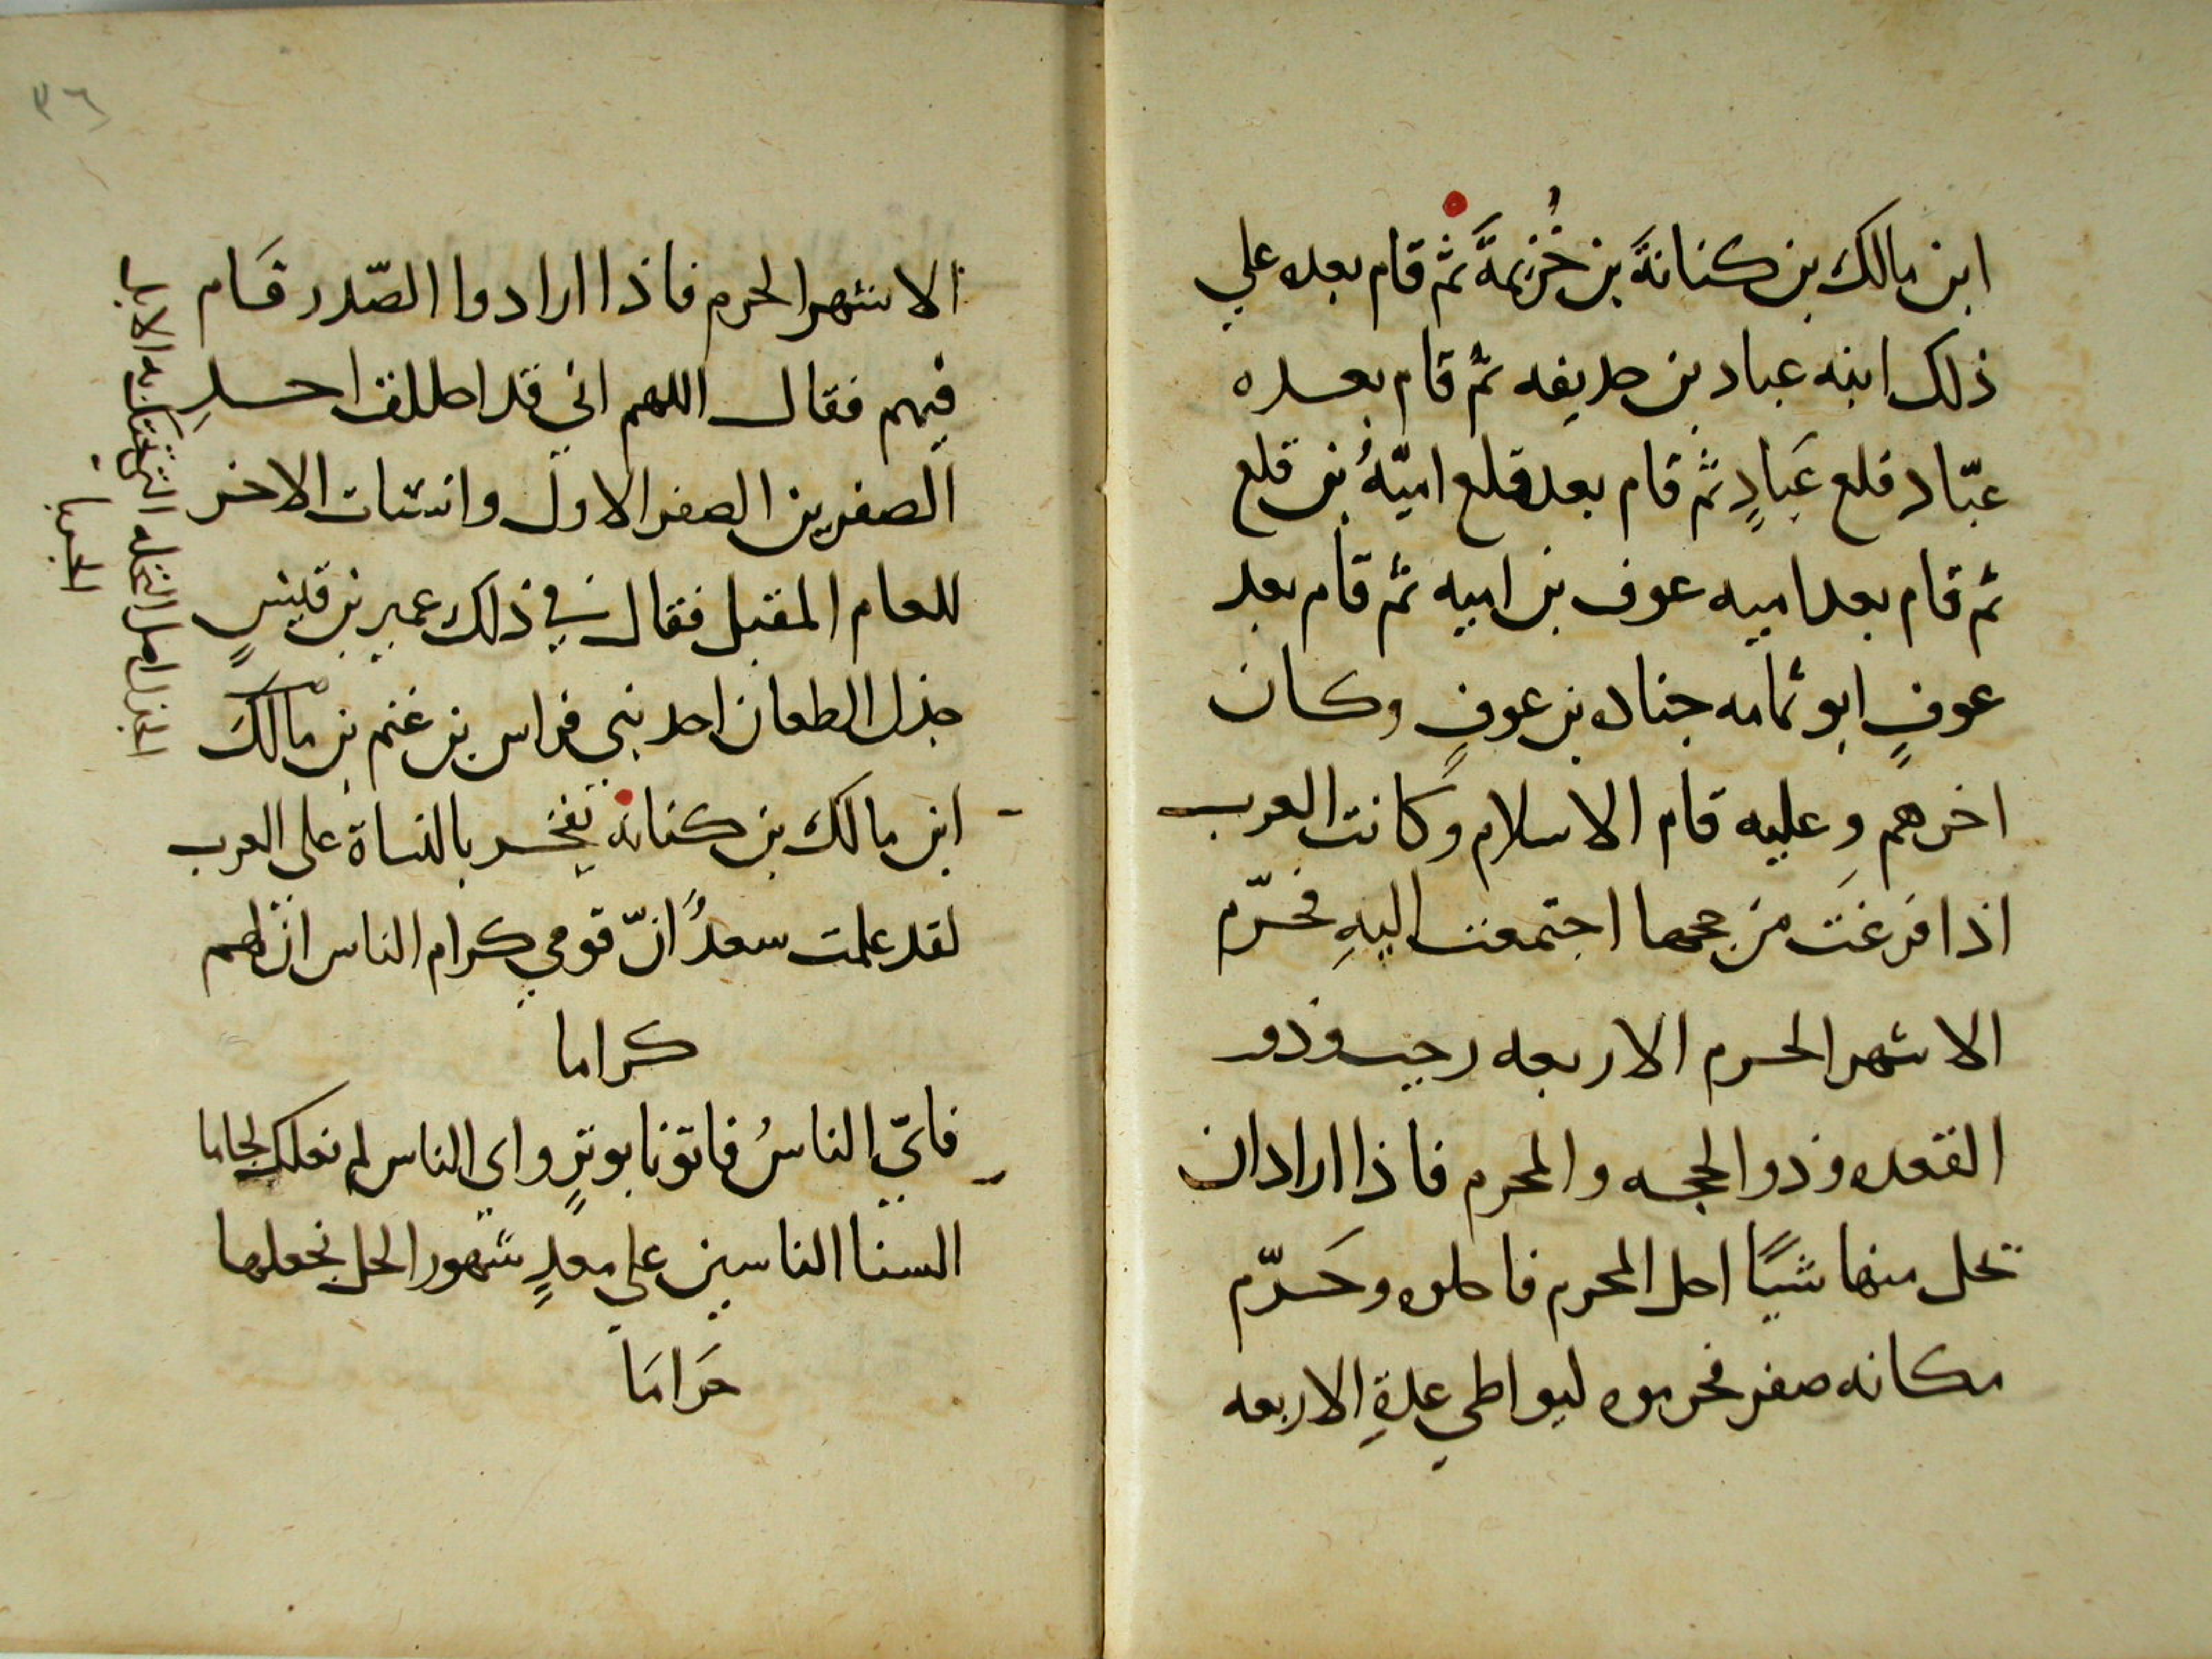 ابن مالك بن كنانةَ بن خُزيمةَ ثم قام بعده علي
ذلك ابنه عباد بن حديفه ثم قام بعده
عبّاد قلع عَبادٍ ثم قام بعد قلع اميّةُ بن قلع
ثم قام بعد اميه عوف بن اميه ثم قام بعد
عوفٍ ابو ثمامه جناده بن عوفٍ وكان
اخرهم وعليه قام الاسلام وكانت العرب
اذا فرغَت من حجها اجتمعت اليهِ فحرّم
الاشهر الحرم الاربعه رجب وذو
القعده وذو الحجه والمحرم فاذا اراد ان
تحل منها شيًا احل المحرم فاحلوه وحَرّم
مكانه صفر فحرموه ليواطي عدةِ الاربعه
٣٦
الاشهر الحرم فاذا ارادوا الصّدر قَام
فيهم فقال اللهم اني قد احللت احدِ
الصفرين الصفر الاول وانسات الاخر
للعام المقبل فقال في ذلك عمير بن قيسٍ
جذل الطعان احد بني فراس بن غنم بن مالك
ابن مالك بن كنانه يفخر بالنساة على العرب
لقد علمت سعدُ انّ قومي كرام الناس ان لهم
كراما
فايّ الناسُ فاتونا بوترٍ واي الناس لم نعلك لجاما
السنا الناسين علي معدٍ شهور الحل نجعلها
حَرامَا
الجذل اصل النخله التي تحتك به الابل
الجربا